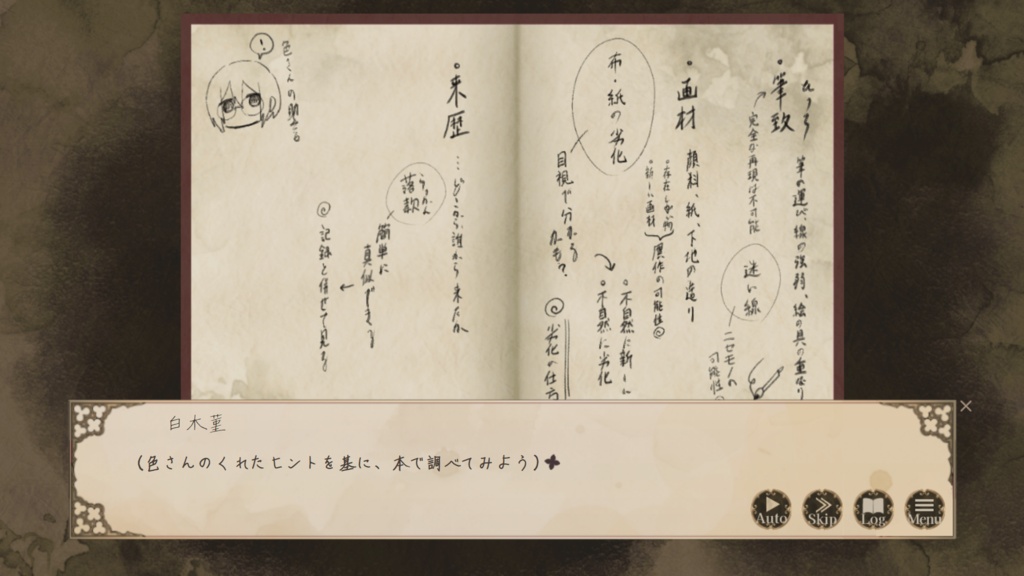 ひっち
・筆致
筆の運び、線の強弱、絵の具の重なり
完全な再現は不可能
迷い線
ニセモノの
可能性
・画材
顔料、紙、下地の塗り
・存在しない物
・新しい画材
贋作の可能性
布・紙の劣化
目視で分かるかも?
・不自然に新しい
・不自然に劣化
劣化の仕方
・来歴
…どこから誰から来たか
らっかん
落款
簡単に
真似できそう
記録と併せて見る
色さんの助言。
!
白木菫
(色さんのくれたヒントを基に、本で調べてみよう)
Auto
Skip
Log
Menu